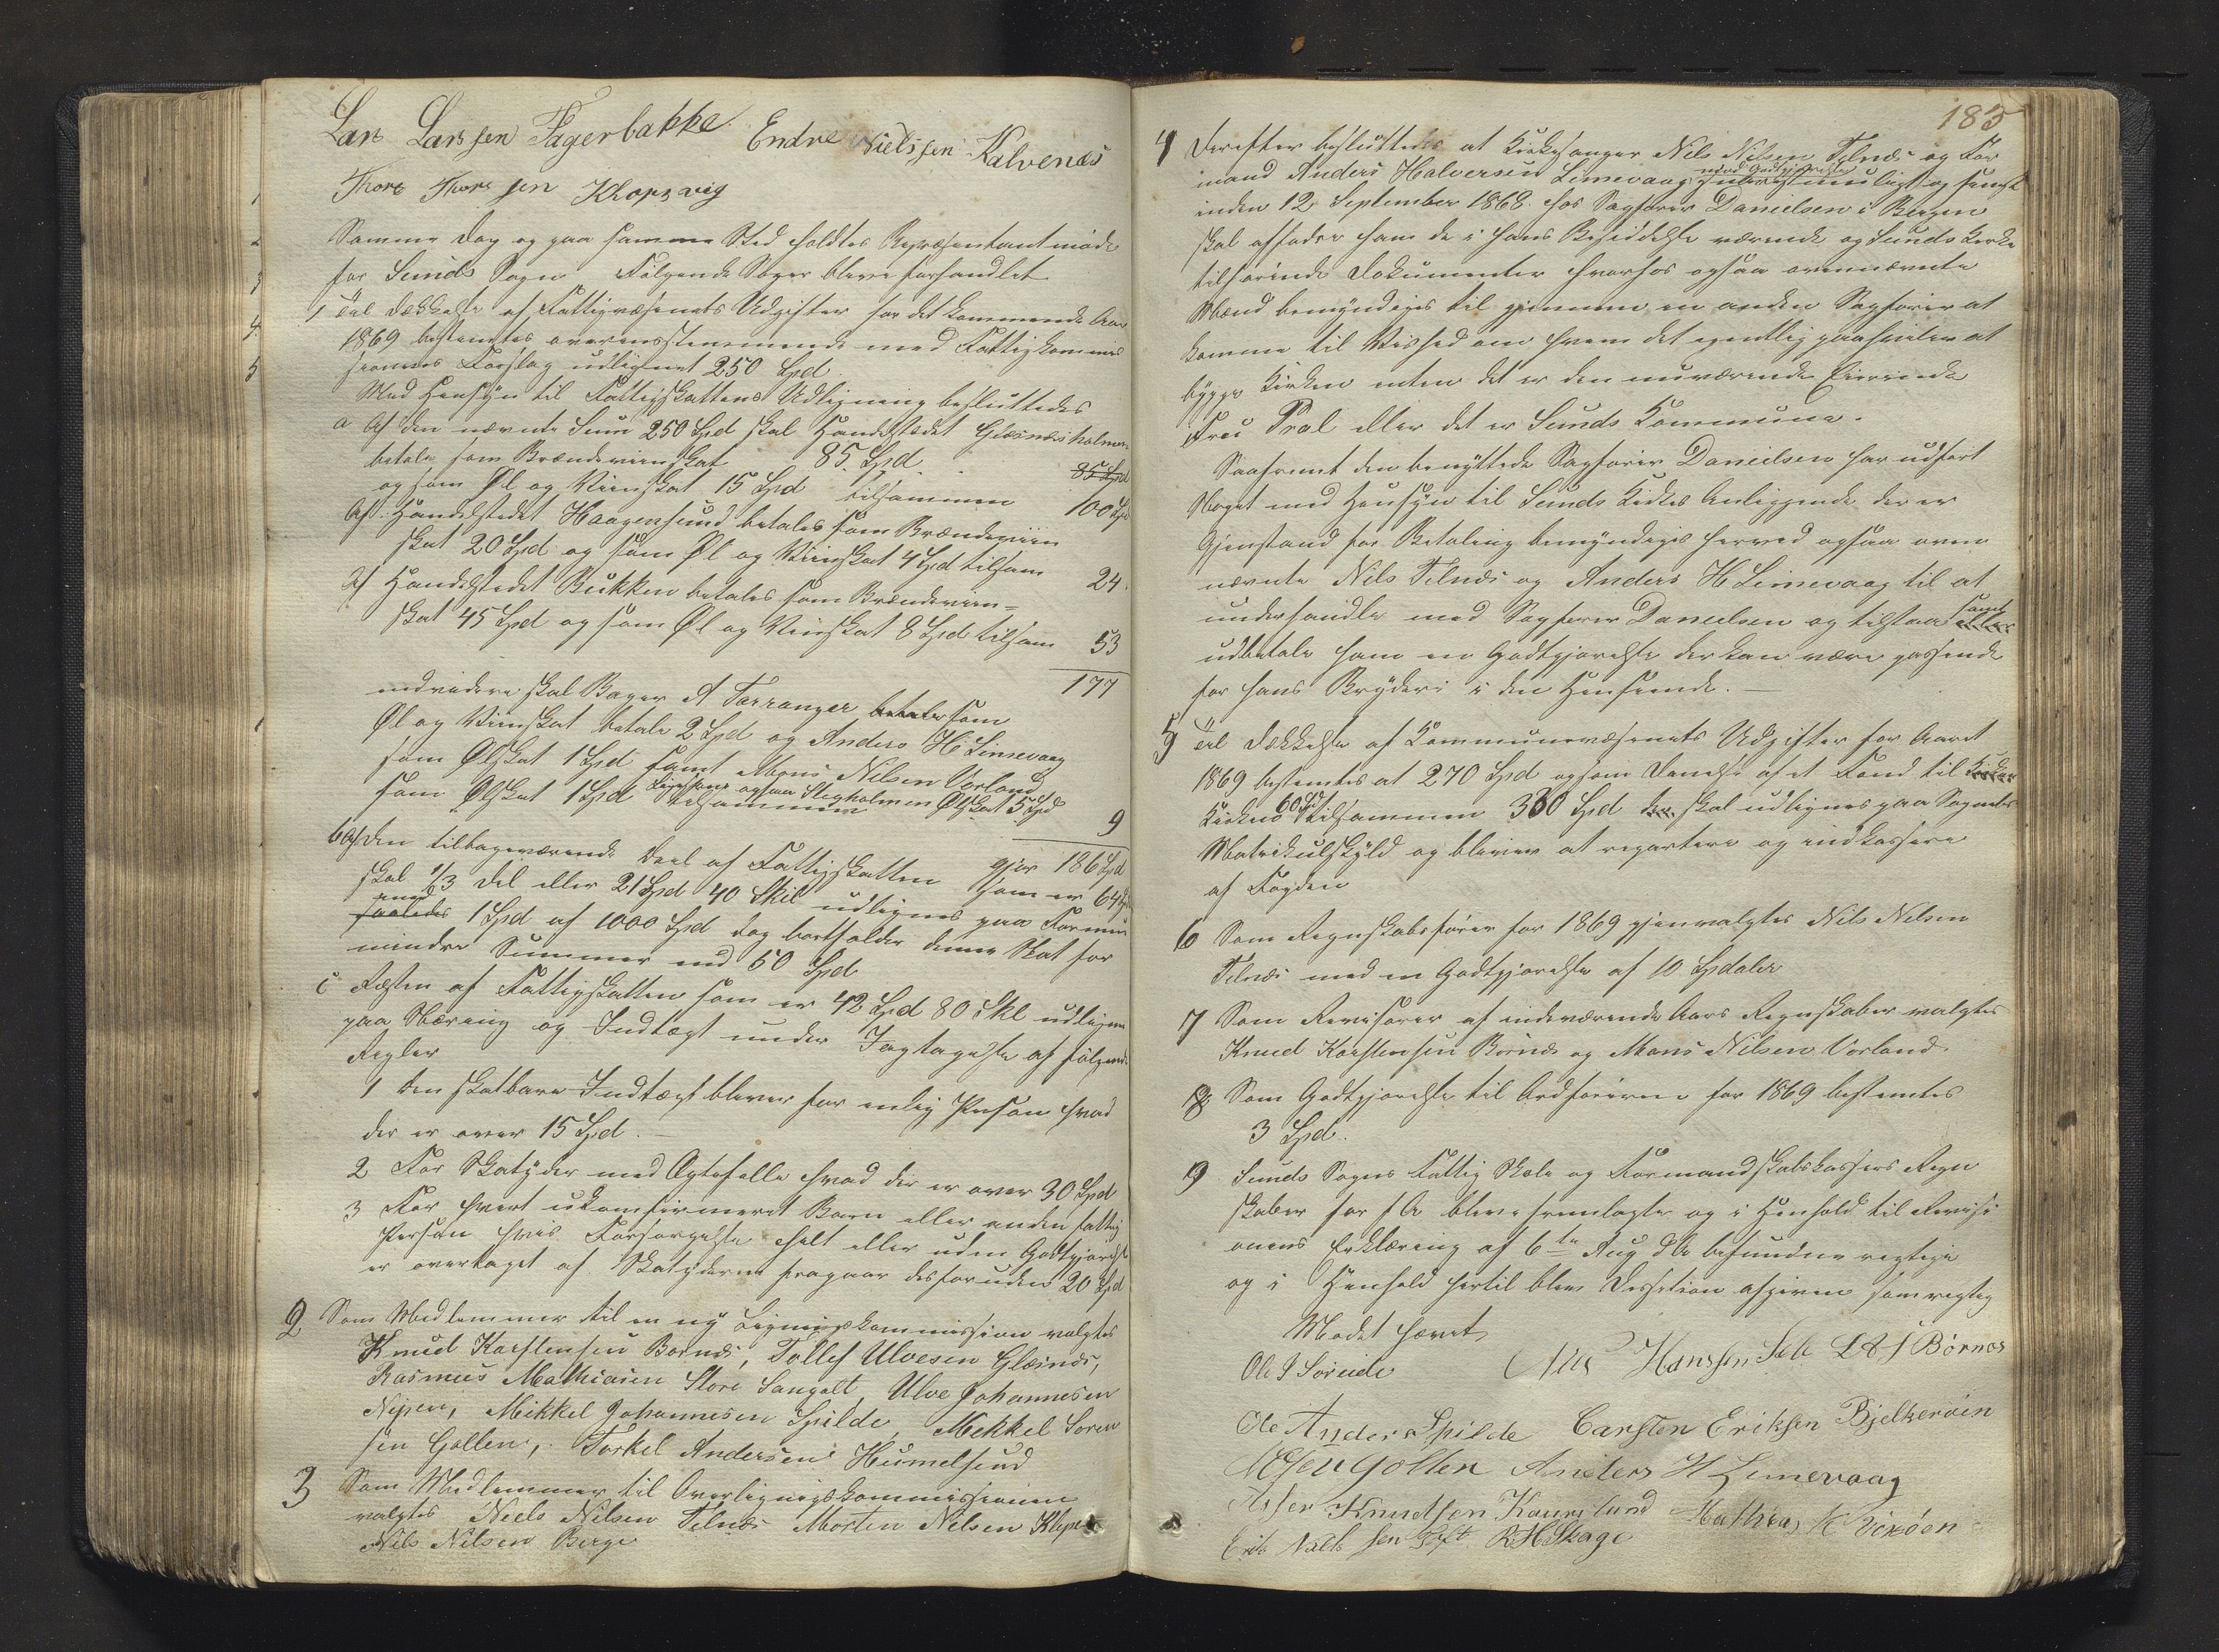 Lars Larssen Fagerbakke Endre Nielssen Kalvenæs
Thore Thorssen Klepsvig
Samme Dag og paa samme Sted holdtes Repræsentantmøde
for Sunds Sogn Følgende Sager bleve forhandlet
1 Til Dækkelse af Fattigvæsenets Udgifter for det kommende Aar
1869 bestemtes overensstemmende med Fattigkommis
sionens Forslag udlignet 250 Spd
Med Hensyn til Fattigskattens Udligning besluttedes
a Af den nævnte Sum 250 Spd skal Handelstedet Glæsnæsholmen
betale som Brændeviinskat 85 Spd 85 Spd
og som Øl og Viinskat 15 Spd tilsammen 100 Spd
Af Handelstedet Haagensund betales som Brændeviin
skat 20 Spd og som Øl og Viinskat 4 Spd tilsam 24
Af Handelstedet Bukken betales som Brændeviin=
skat 45 Spd og som Øl og Viinskat 8 Spd tilsam 53
177
endvidere skal Bager A Tørranger betale som
Øl og Viinskat betale 2 Spd og Anders H Limevaag
som Ølskat 1 Spd samt Mons Nilsen Vorland
som Ølskat 1 Spd ogsaa Stegholmen Ølskat 5 Spd
tilsammen 9
b Af den tilbageværende Deel af Fattigskatten gjør 186 Spd
skal 1/3 Del eller 21 Spd 40 Skil udlignes paa Formue som er 64 Spd
saaledes 1 Spd af 1000 Spd dog bortfalder denne Skat for
mindre Summer end 50 Spd
c Resten af Fattigskatten som er 42 Spd 80 Skl udlignes
paa Næring og Indtægt under Iagtagelse af følgende
Regler
1 Den skatbare Indtægt bliver for enlig Person hvad
der er over 15 Spd.
2 For Skatyder med Ægtefelle hvad der er over 30 Spd
3 For hvert ukonfirmeret Barn eller anden fattig
Person hvis Forsørgelse helt eller uden Godtgjørelse
er overtaget af Skatyderne fragaar desforuden 20 Spd
2 Som Medlemmer til en ny Ligningskommission valgtes
Knud Karstensen Bornæs, Tollef Ulvesen Glæsnæs,
Rasmus Mathiasen Store Sangolt, Ulve Johannesen
Nipen, Mikkel Johannesen Spilde, Mekkel Soren
sen Golten, Torkel Andersen Humelsund
3 Som Medlemmer til Overligningskommissionen
valgtes Niels Nilsen Telnæs Morten Nilsen Klepe
Nils Nilsen Berge
183
4 Derefter besluttedes at Kirkesanger Nils Nilsen Telnæs og For
mand Anders Halversen Limevaag mod Godtgjørelse snarest muligt og senest
inden 12 September 1868 hos Sagfører Danielsen i Bergen
skal affodre ham de i hans Besiddelse værende og Sunds Kirke
tilhørende Dokumenter hvorhos ogsaa ovennævnte
Mænd bemyndiges til gjennem en anden Sagfører at
komme til Vished om hvem det egentlig paahviler at
bygge Kirken enten det er den nuværende Eierinde
Frue Pral eller det er Sunds Kommune.
Saafremt den benyttede Sagfører Danielsen har udført
Noget med Hensyn til Sunds Kirkes Anliggende der er
Gjenstand for Betaling bemyndiges herved ogsaa oven
nævnte Nils Telnæs og Anders H Limevaag til at
underhandle med Sagfører Danielsen og tilstaa samt
udbetale ham en Godtgjørelse der kan være passende
for hans Bryderi i den Henseende.
5 Til Dækkelse af Kommunevæsenets Udgifter for Aaret
1869 bestemtes at 270 Spd ogsom Dannelse af et Fond til
Kirken 60 Spd tilsammen 330 Spd skal udlignes paa Sognets
Matrikulskyld og bliver at repartere og indkassere
af Fogden
6 Som Regnskabsfører for 1869 gjenvalgtes Nils Nilsen
Telnæs med en Godtgjørelse af 10 Spdaler
7 Som Revisorer af indeværende Aars Regnskaber valgtes
Knud Karstensen Bornæs og Mons Nilsen Vorland
8 Som Godtgjørelse til Ordføreren for 1869 bestemtes
3 Spd.
9 Sunds Sogns Fattig Skole og Formandskabskassers Regn
skaber for f A bleve fremlagte og i Henhold til Revisi
onens Erklæring af 6te Aug d A befundne rigtige
og i Henhold hertil blev Dessition afgiven som rigtig
Mødet hævet
Ole J Søreide Nils Hanssen Sele L A J Børnes
Ole Anders Spilde Carsten Eriksen Bjelkerøen
Golten Anders H Limevaag
Asser Knudtsen Kausland Mathias K Vixøen
Erik Niels sen Toft R H Skage